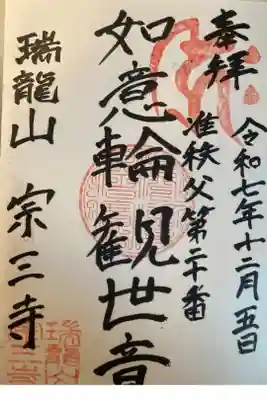 奉拝
令和七年十二月五日
准秩父第二十番
如意輪觀世音
瑞龍山 宗三寺